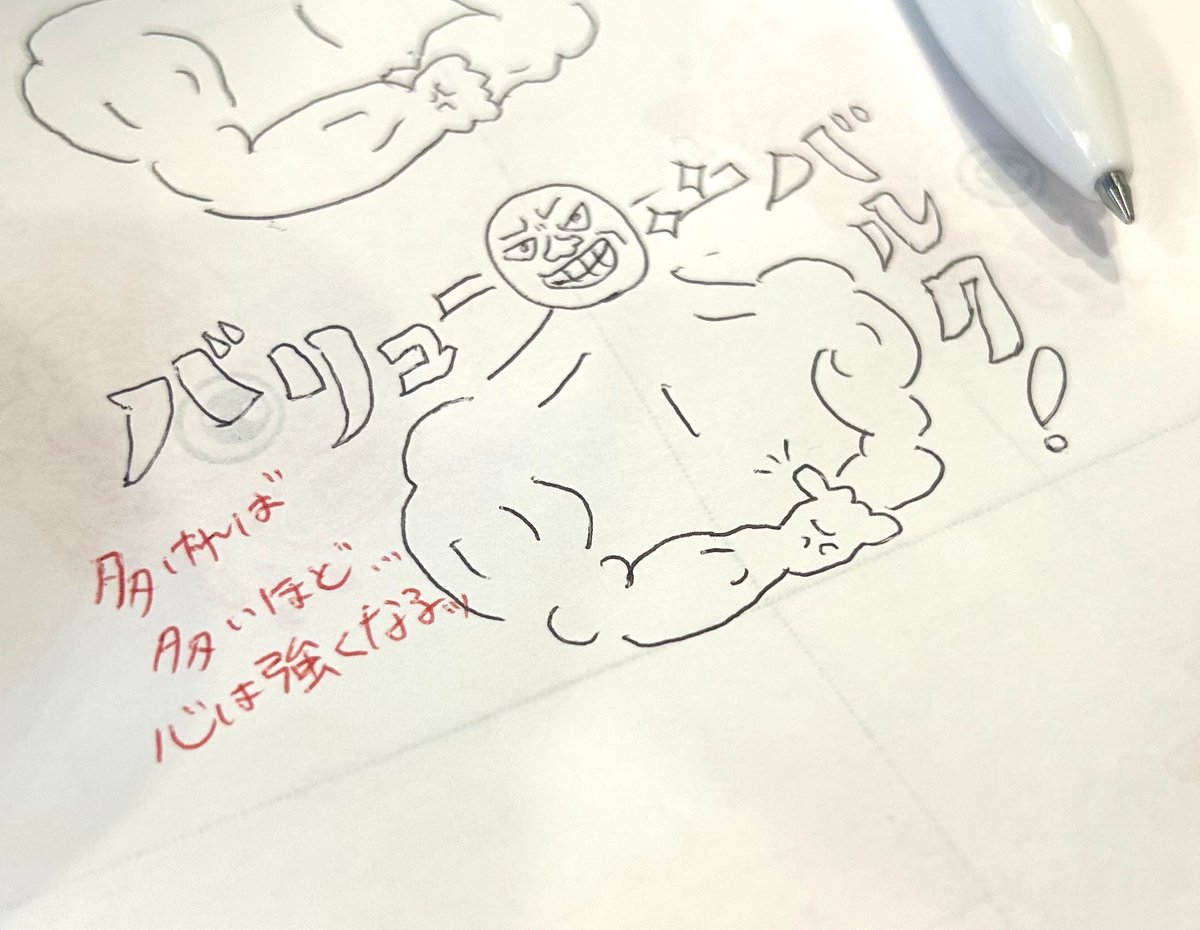 バリューバルク!
多ければ
多いほど…
心は強くなるッ